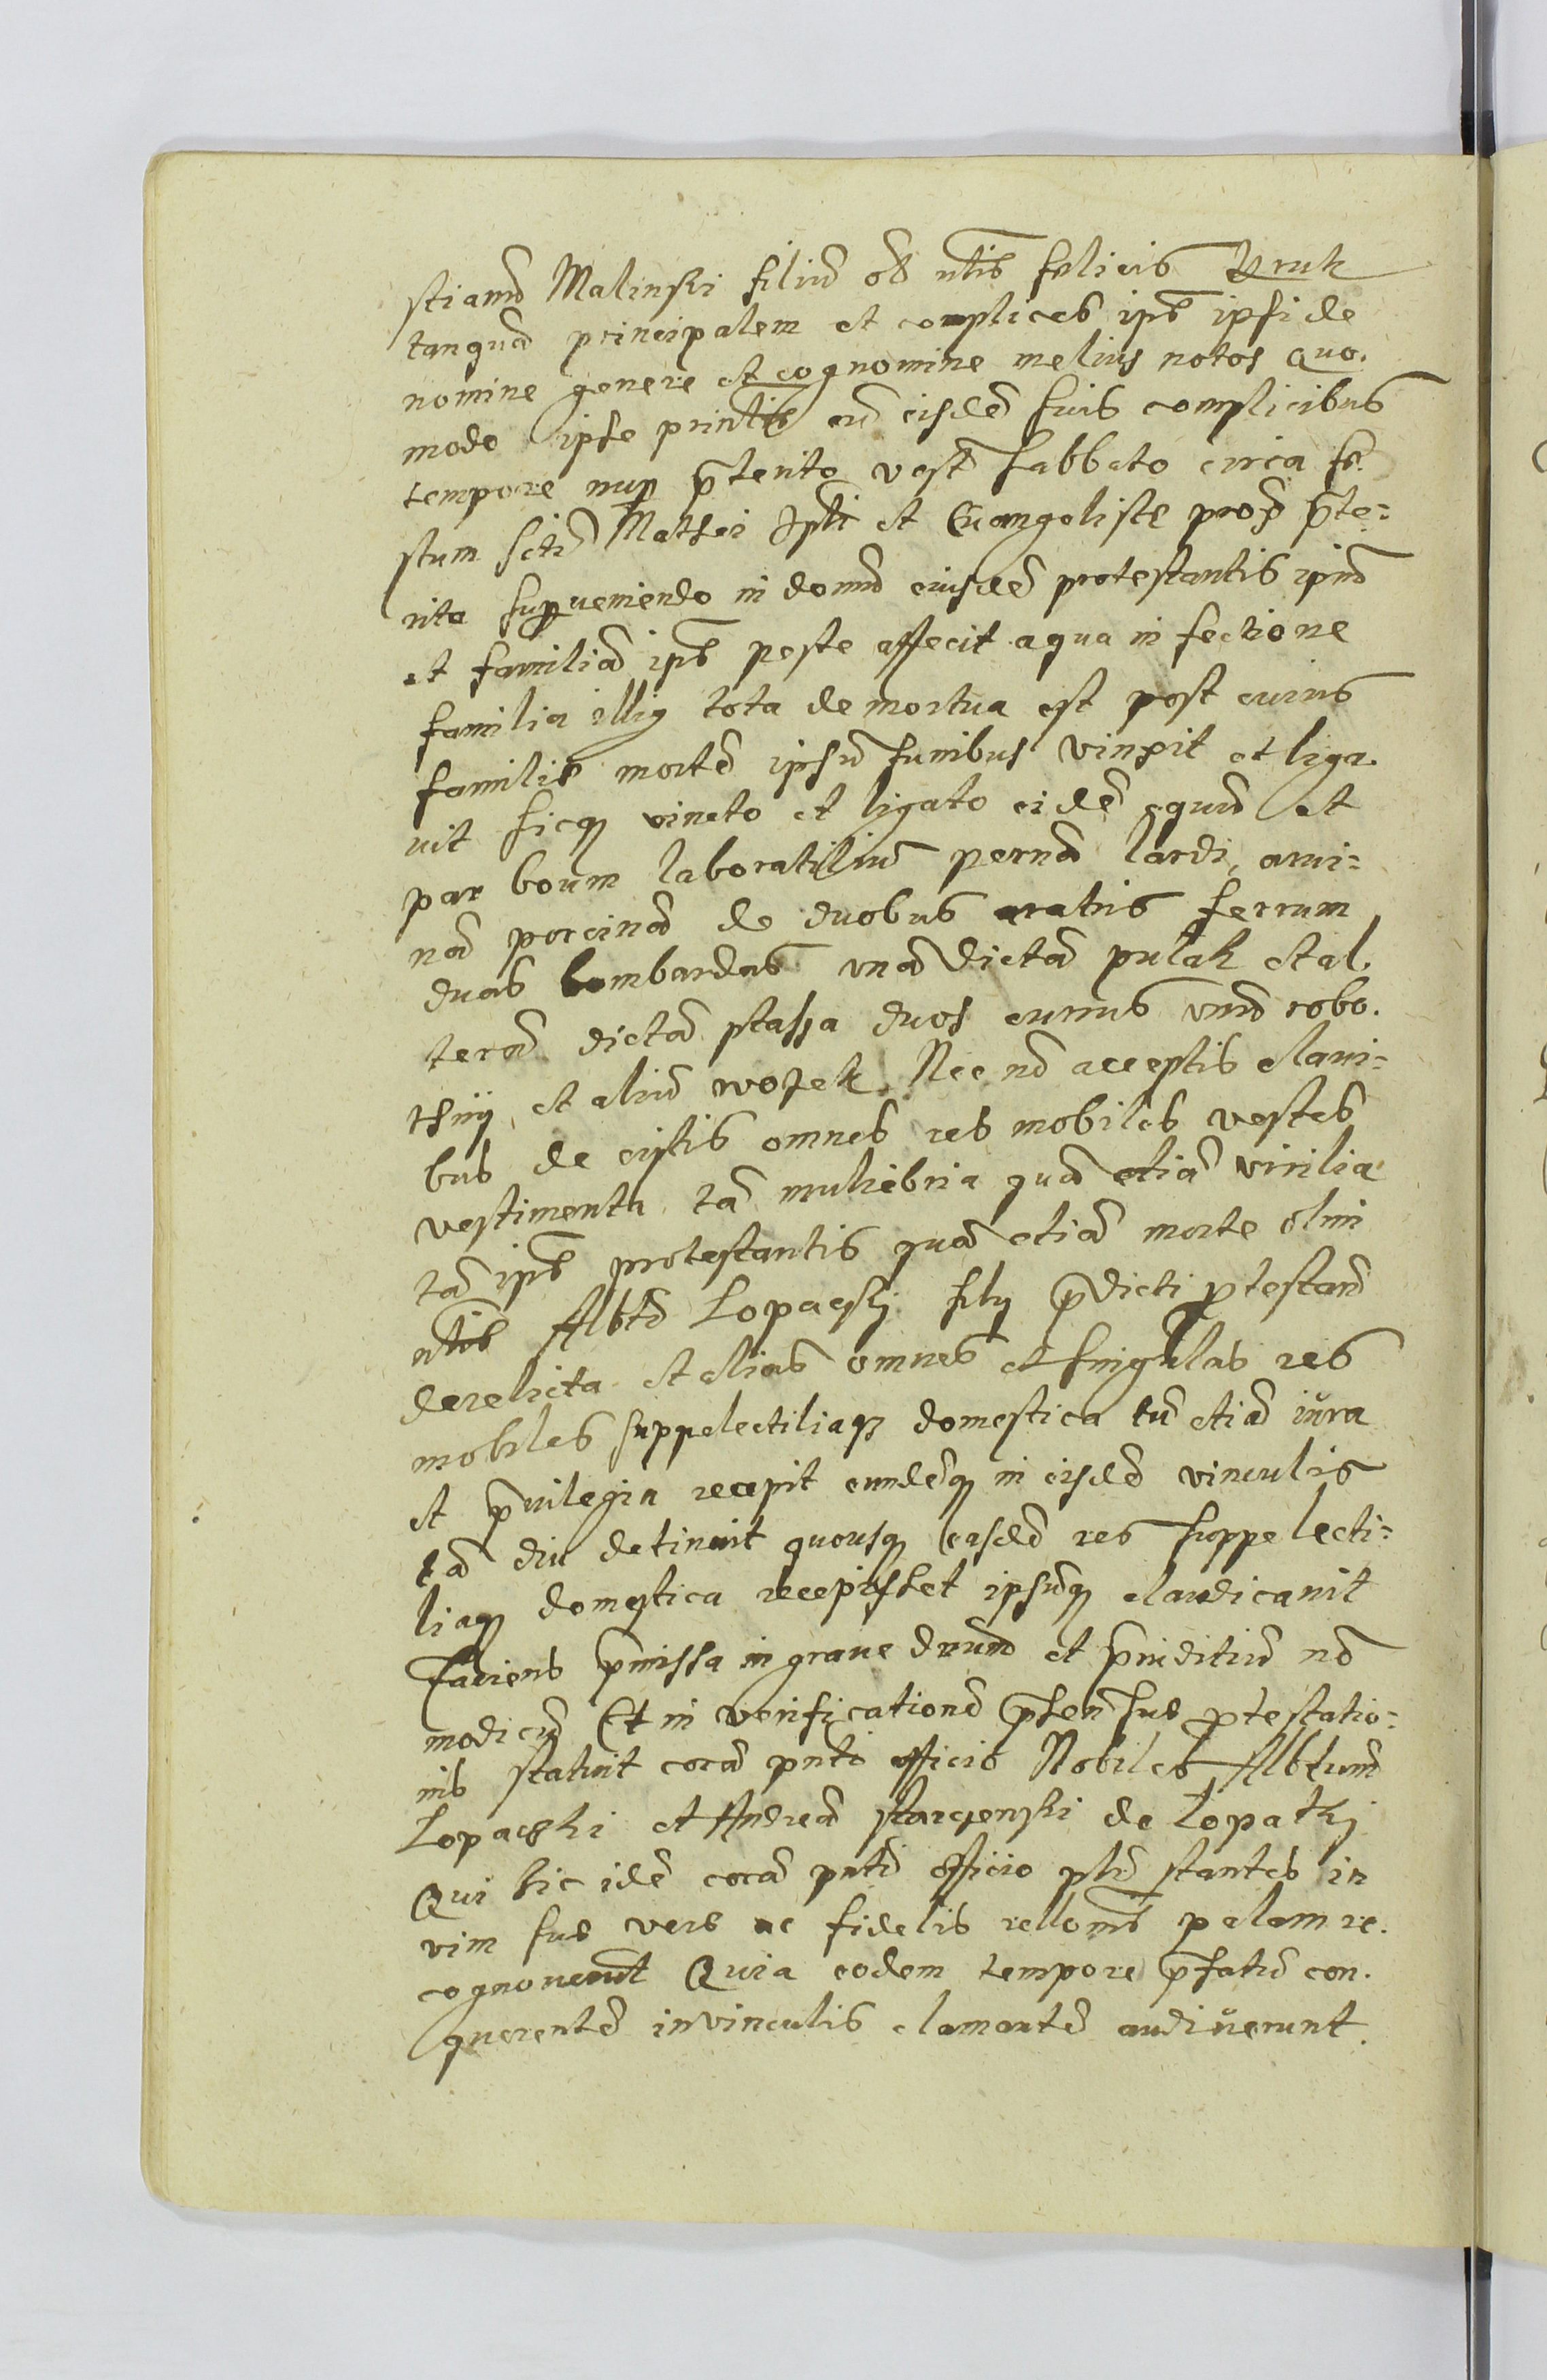 stianū Malinski filiū oɫ ntis felicis Kruk
tanquā principalem et complices ips̄ ipsi de
nomine genere et cognomine melius notos quo.
modo ipse prin̄tis cū eisdē suis complicibus
tempore nup p̄terito vest̄ sabbato circa fe.
stum scti Mathei Apl̄i et Euangeliste prox̄ p̄te=
rita supueniendo in domū eiusdē protestantis ipm̄
et familiā ips̄ peste affecit aqua infectione
familia illiꝯ tota demortua est post cuius
familie mortē ipsū funibus vinxit et liga.
uit sicqꝫ vincto et ligato eidē equū et
par boum laboratiliū pernā lardi, arui=
nā porcinā de duobus aratris ferrum
duas bombardas vnā dictā pulak et al.
terā dictā ptassa duos currus vnū robo.
thnÿ et aliū wozek. Nec nō acceptis claui=
bus de cistis omnes res mobiles vestes
vestimenta tā muliebria quā etiā virilia
tā ips̄ protestantis quā etiā morte olim
ntis Albtī Lopaczkj filÿ p̄dicti ꝓtestan̄
derelicta et alias omnes et singulas res
mobiles suppelectiliaqꝫ domestica tū etiā iura
et p̄uilegia recepit eundēqꝫ in eisdē vinculis
tā diu detinuit quousqꝫ easdē res suppelecti=
liaqꝫ domestica recepisset ipsūqꝫ claudicauit
faciens p̄missa in graue dam̄nū et p̄iuditiū nō
modicū Et in verificationē p̄sen̄ sue ꝓtestatio=
nis statuit corā pnti officio Nobiles Albtum
Lopaczki et Andreā Skarzenski de Lopathkj
Qui hic idē corā pnti officio pl̄r stantes in
vim sue vere ac fidelis relloīs palam re.
cognouerūt Quia eodem tempore p̄fatū con.
querentē in vinculis clamantē audiuerunt.